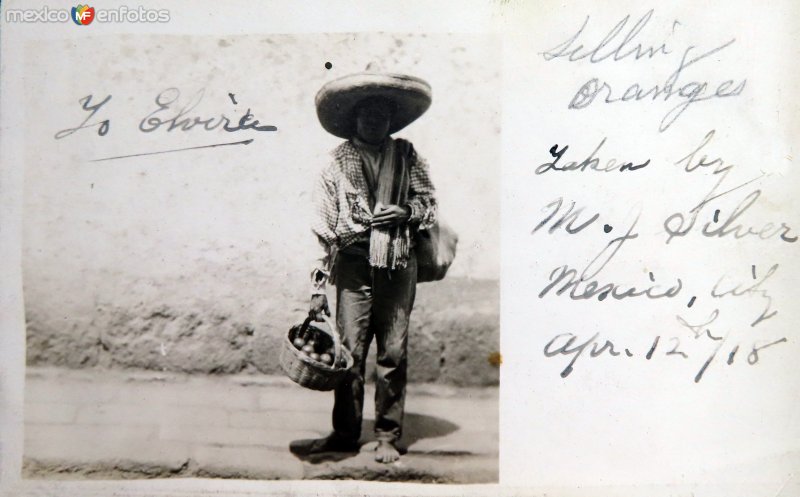 mexico MF enfotos
To Elvira
Selling
oranges
Taken by
M. J. Silver
Mexico, City
Apr. 12th/18